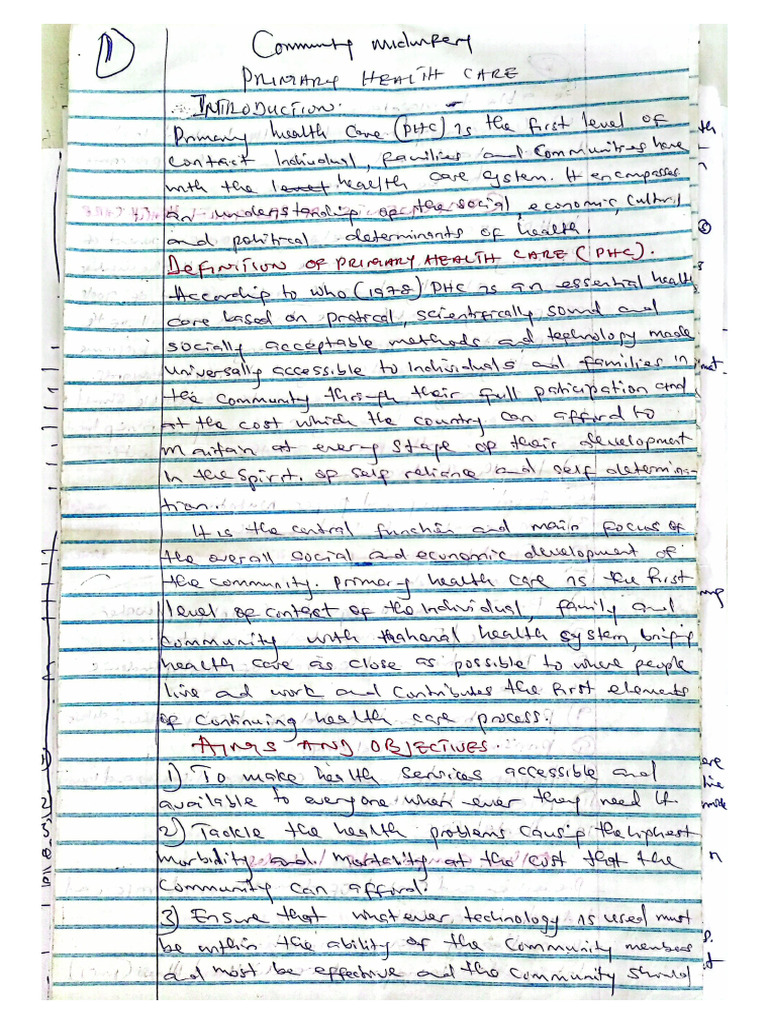 1
Community midwifery
PRIMARY HEALTH CARE
INTRODUCTION.
Primary health care (PHC) is the first level of
contact Individual, families and Communities have
with the level health care system. It encompasses
an understanding of the social, economic, cultural
and political determinants of health.
DEFINITION OF PRIMARY HEALTH CARE (PHC).
According to WHO (1978) PHC is an essential health
care based on pratical, scientifically sound and
socially acceptable methods and technology made
universally accessible to individuals and families in
the community through their full paticipation and
at the cost which the country can afford to
maintain at every stage of their development
in the spirit of self reliance and self determina-
tion.
It is the central function and main focus of
the overall social and economic development of
the community. primary health care is the first
level of contact of the individual, family and
community with the national health system, bringing
health care as close as possible to where people
live and work and contributes the first elements
of continuing health care process.
AIMS AND OBJECTIVES.
1) To make health services accessible and
available to everyone when ever they need it.
2) Tackle the health problems causing the highest
morbidity and mortality at the cost that the
Community can afford.
3) Ensure that what ever technology is used must
be within the ability of the Community members
and most be effective and the Community should